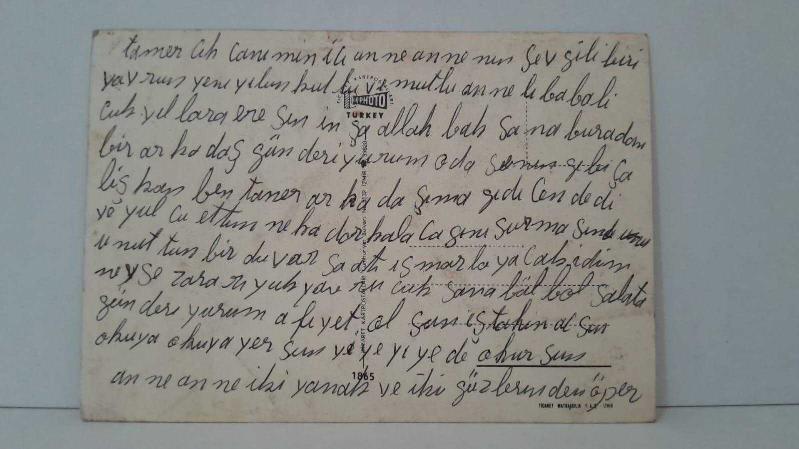 tamer cik canımın ici anne anne nin sevgili biri
yavrum yeni yılın kutlu ve mutlu anne li baba li
cok yıllara ere sin in şa allah bak sana buradan
bir arkadaş gönderiyurum o da senin gibi ça
lış kan ben taner ar ka da şıma gidi cen dedi
ve yul cu ettim ne ka dar kala ca gını sorma sında
unut tun bir duvar saatı işmarlayacakıdım
neyse zararı yuk yavrum cuk sana bol bol salata
gönderiyurum afiyet ol sun iştahın al sın
okuya okuya yer sun ve yeyiye de okur sun
anneanne iki yanak ve iki gözlerinden öper
PHOTO
TURKEY
1865
TİCARET MATBAACILIK T.A.Ş. İZMİR